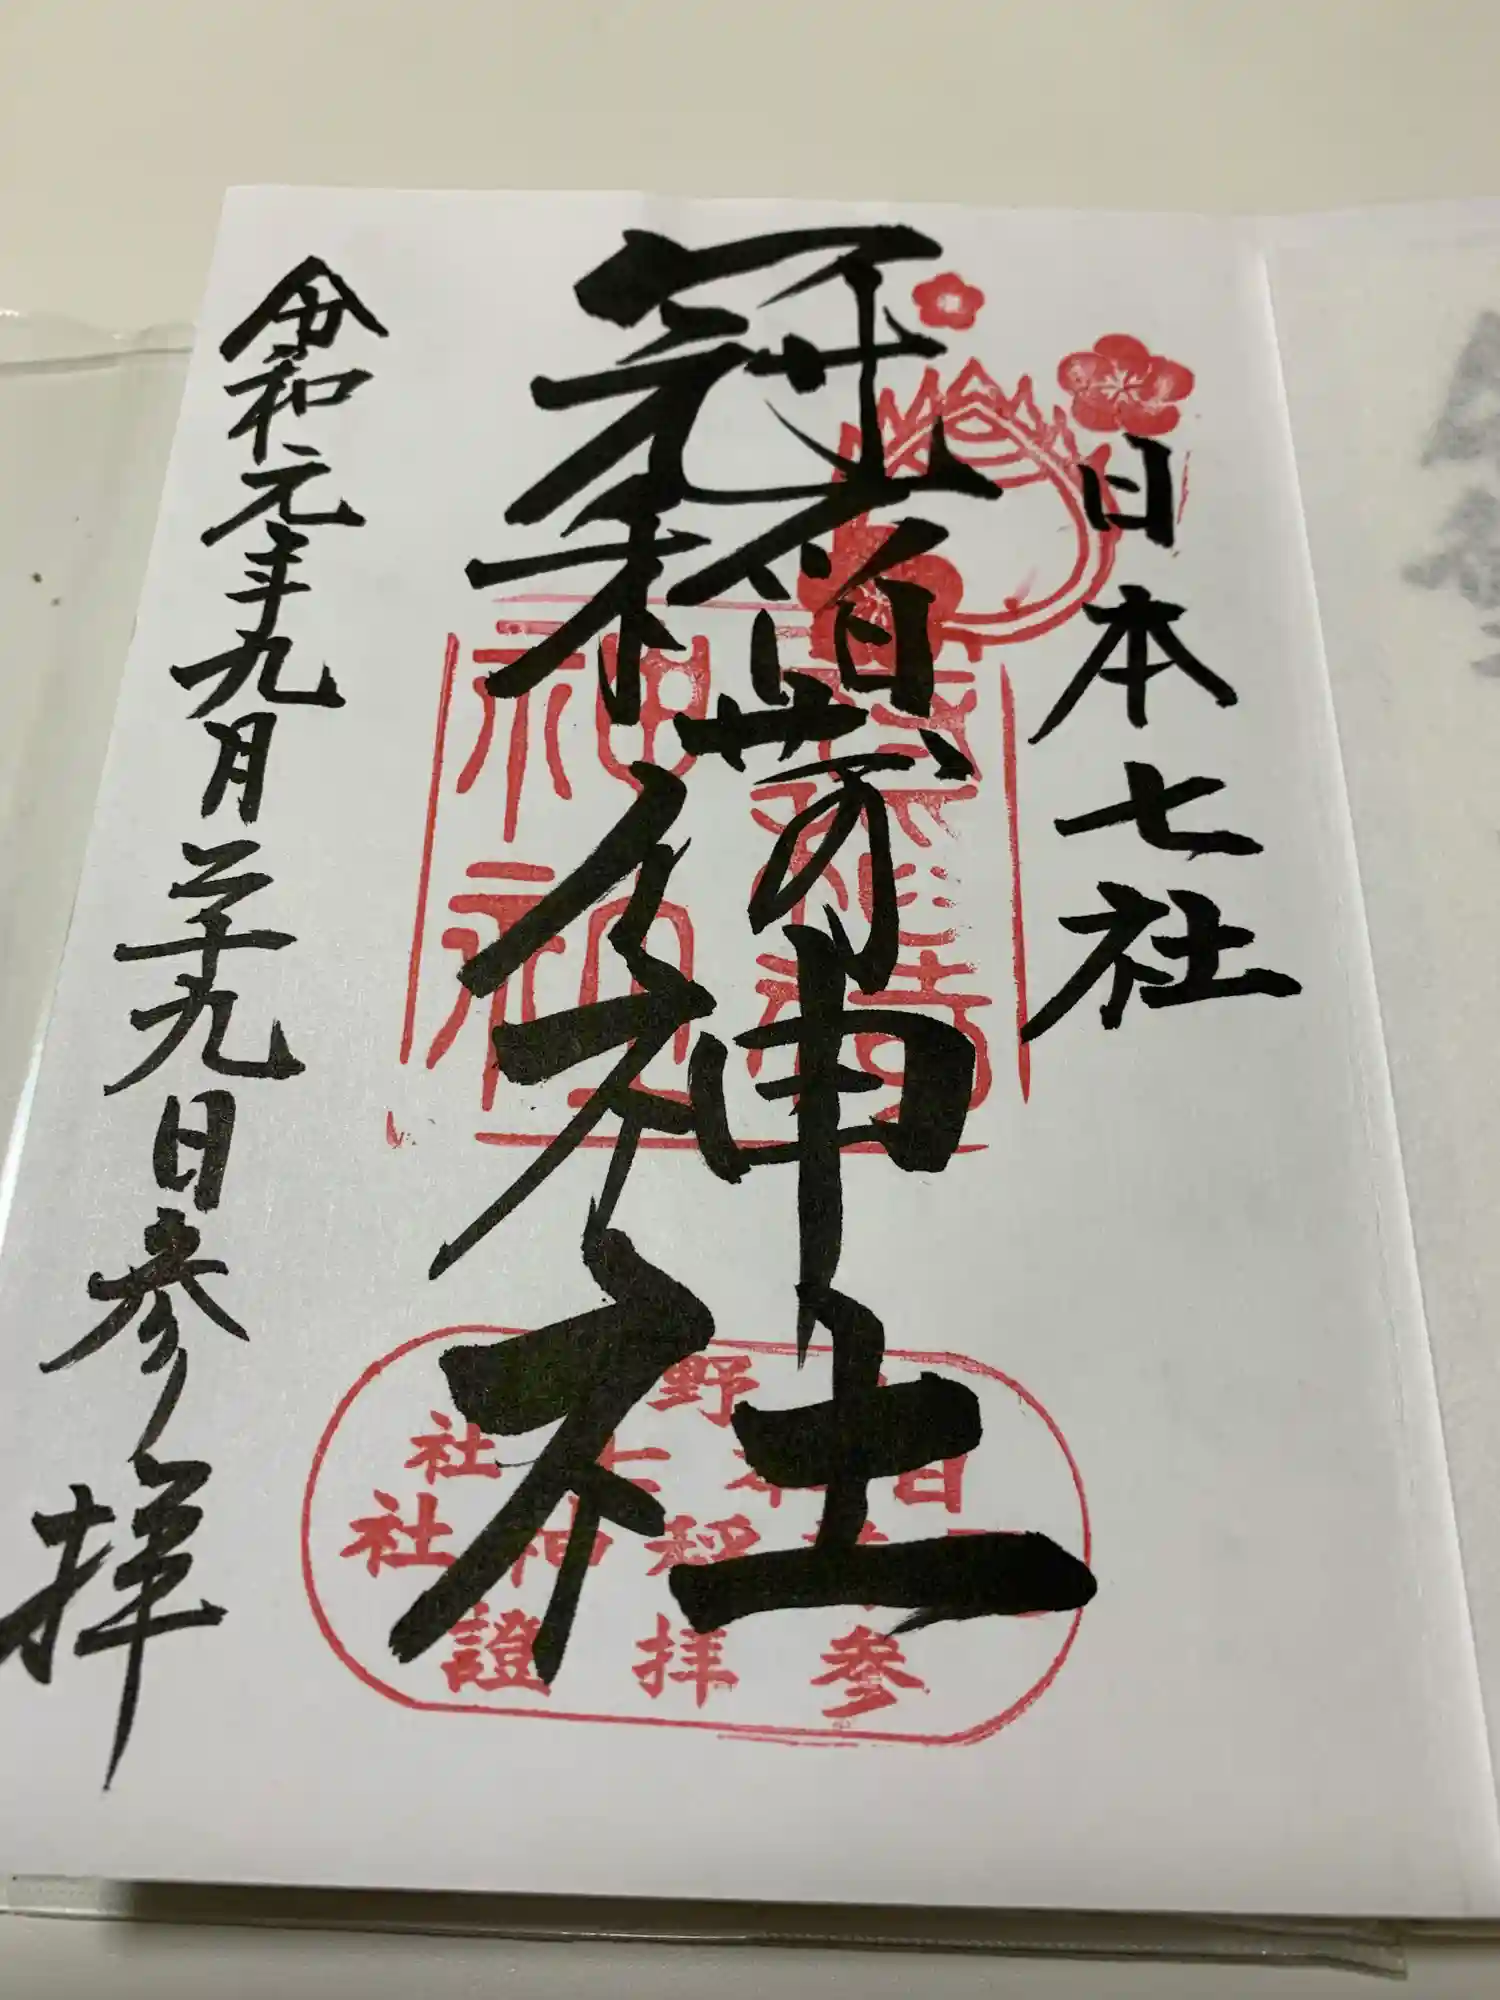 日本七社
冠稲荷神社
令和元年九月二十九日参拝
神社
野
日本七社
稲荷神社
参拝證